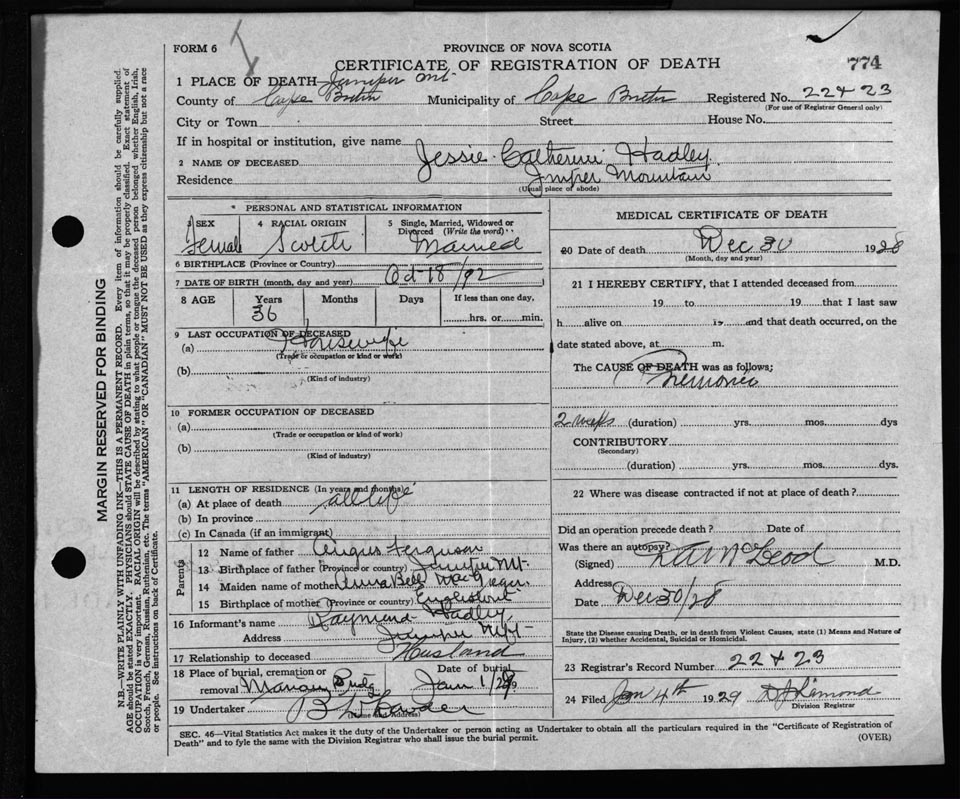 FORM 6
PROVINCE OF NOVA SCOTIA
CERTIFICATE OF REGISTRATION OF DEATH
774
1 PLACE OF DEATH Juniper Mt.
County of Cape Breton Municipality of Cape Breton Registered No. 22423
(For use of Registrar General only)
City or Town Street House No.
If in hospital or institution, give name
2 NAME OF DECEASED Jessie Catherine Hadley
Residence Juniper Mountain
(Usual place of abode)
* PERSONAL AND STATISTICAL INFORMATION
3 SEX 4 RACIAL ORIGIN 5 Single, Married, Widowed or Divorced (Write the word)
Female Scotch Married
6 BIRTHPLACE (Province or Country)
7 DATE OF BIRTH (month, day and year) Oct 18/92
8 AGE Years Months Days If less than one day,
36 hrs. or min.
9 LAST OCCUPATION OF DECEASED
(a) Housewife
(Trade or occupation or kind or work)
(b)
(Kind of industry)
10 FORMER OCCUPATION OF DECEASED
(a)
(Trade or occupation or kind of work)
(b)
(Kind of industry)
11 LENGTH OF RESIDENCE (In years and months)
(a) At place of death all life
(b) In province
(c) In Canada (if an immigrant)
Parents
12 Name of father Angus Ferguson
13 Birthplace of father (Province or country) Juniper Mt.
14 Maiden name of mother Anna Bell MacGregor
15 Birthplace of mother (Province or country) Englishtown
16 Informant's name Raymond Hadley
Address Juniper Mt
17 Relationship to deceased Husband
18 Place of burial, cremation or removal Date of burial
Jan 1/29
19 Undertaker
(Name and Address)
MEDICAL CERTIFICATE OF DEATH
20 Date of death Dec 30 1928
(Month, day and year)
21 I HEREBY CERTIFY, that I attended deceased from
19 to 19 that I last saw
h alive on 19 and that death occurred, on the
date stated above, at m.
The CAUSE OF DEATH was as follows:
Pnemonia
2 weeks (duration) yrs. mos. dys
CONTRIBUTORY
(Secondary)
(duration) yrs. mos. dys.
22 Where was disease contracted if not at place of death?
Did an operation precede death? Date of
Was there an autopsy?
(Signed) McLeod M.D.
Address
Date Dec 30/28
State the Disease causing Death, or in death from Violent Causes, state (1) Means and Nature of
Injury, (2) whether Accidental, Suicidal or Homicidal.
23 Registrar's Record Number 22423
24 Filed Jan 4th 1929
Division Registrar
SEC. 46—Vital Statistics Act makes it the duty of the Undertaker or person acting as Undertaker to obtain all the particulars required in the "Certificate of Registration of
Death" and to fyle the same with the Division Registrar who shall issue the burial permit.
(OVER)
MARGIN RESERVED FOR BINDING
N.B.—WRITE PLAINLY WITH UNFADING INK—THIS IS A PERMANENT RECORD. Every item of information should be carefully supplied.
AGE should be stated EXACTLY. PHYSICIANS should STATE CAUSE OF DEATH in plain terms, so that it may be properly classified. Exact statement of
OCCUPATION is very important. RACIAL ORIGIN will be described by stating to what people or tongue the deceased person belonged whether English, Irish,
Scotch, French, German, Russian, Ruthenian, etc. The terms "AMERICAN" OR "CANADIAN" MUST NOT BE USED as they express citizenship but not a race
or people. See instructions on back of Certificate.